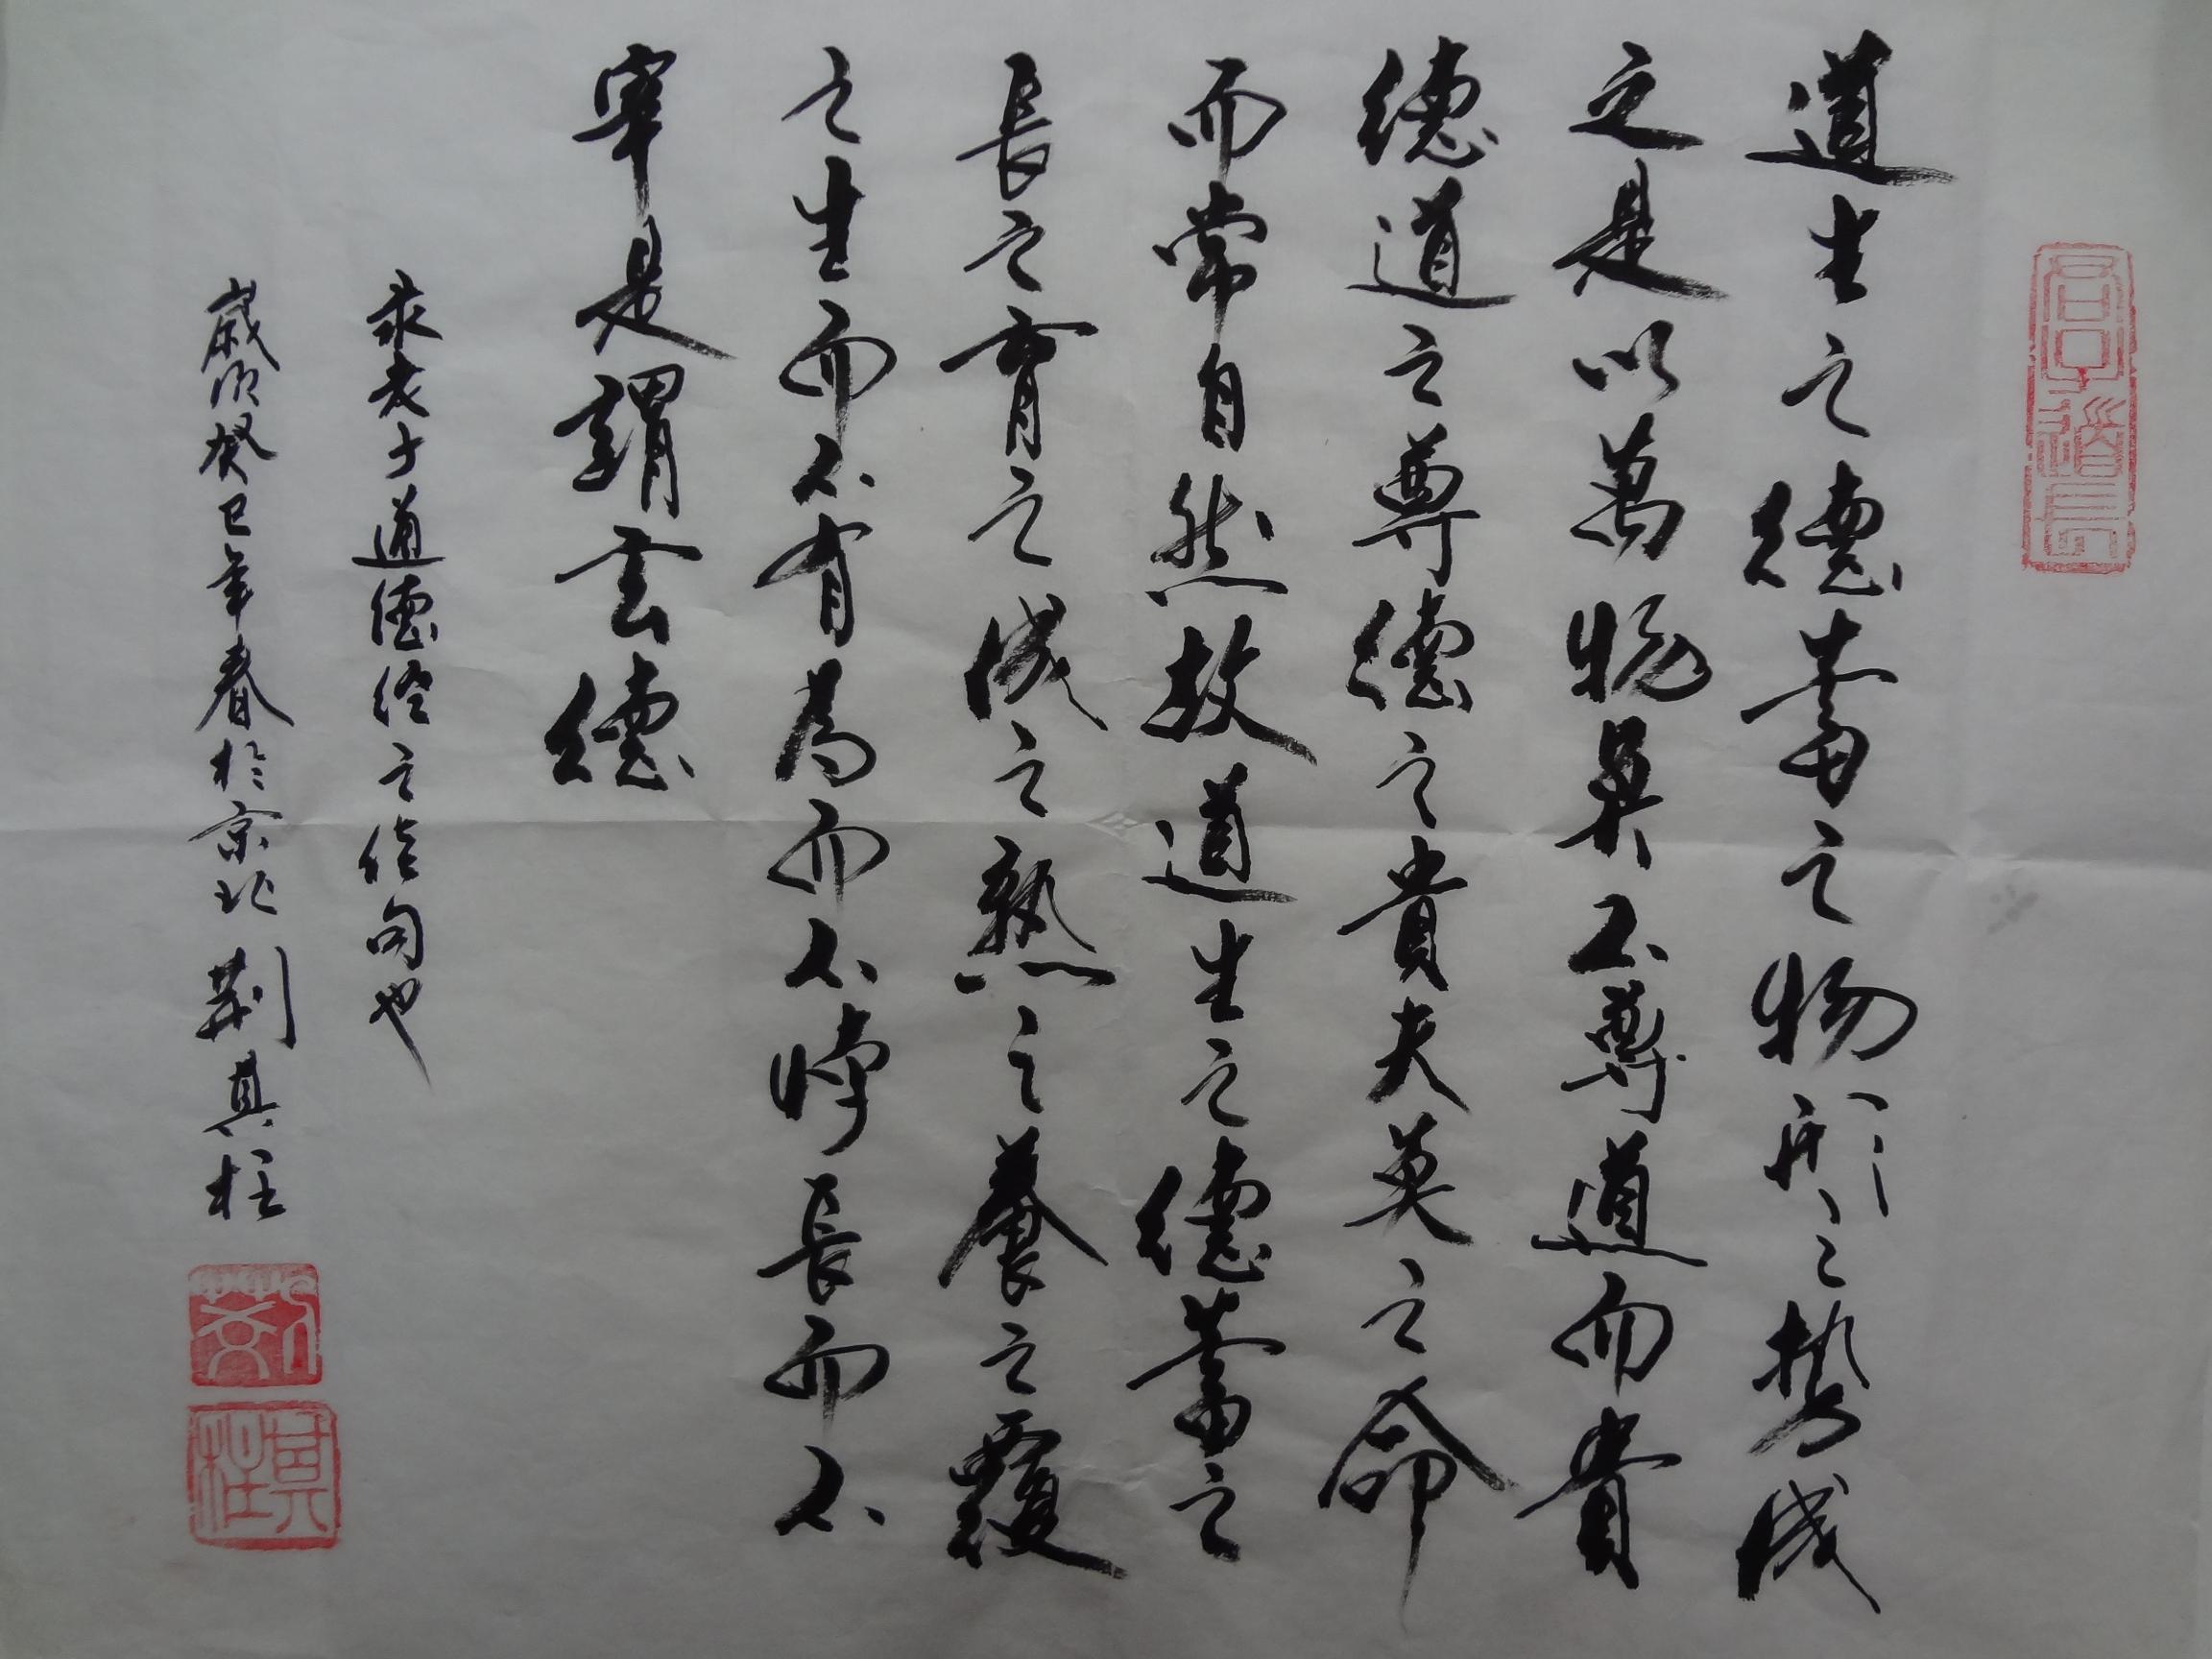 道生之德畜之物形之勢成
之是以萬物莫不尊道而貴
德道之尊德之貴夫莫之命
而常自然故道生之德蓄之
長之育之成之熟之養之覆
之生而不有為而不恃長而不
宰是謂玄德
录老子道德经之佳句也
歲次癸巳年春於京北 荆真柱
君子道長
荆
真柱